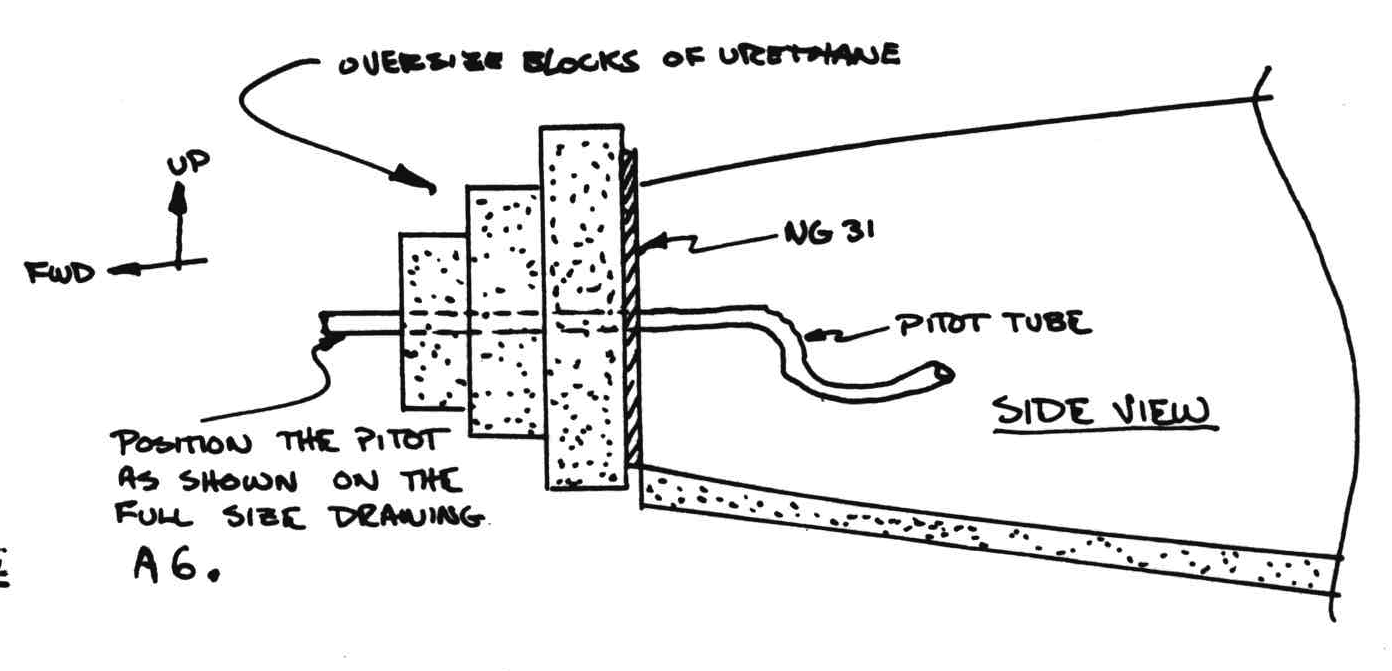 OVERSIZE BLOCKS OF URETHANE
UP
FWD
NG 31
PITOT TUBE
SIDE VIEW
POSITION THE PITOT
AS SHOWN ON THE
FULL SIZE DRAWING
A6.